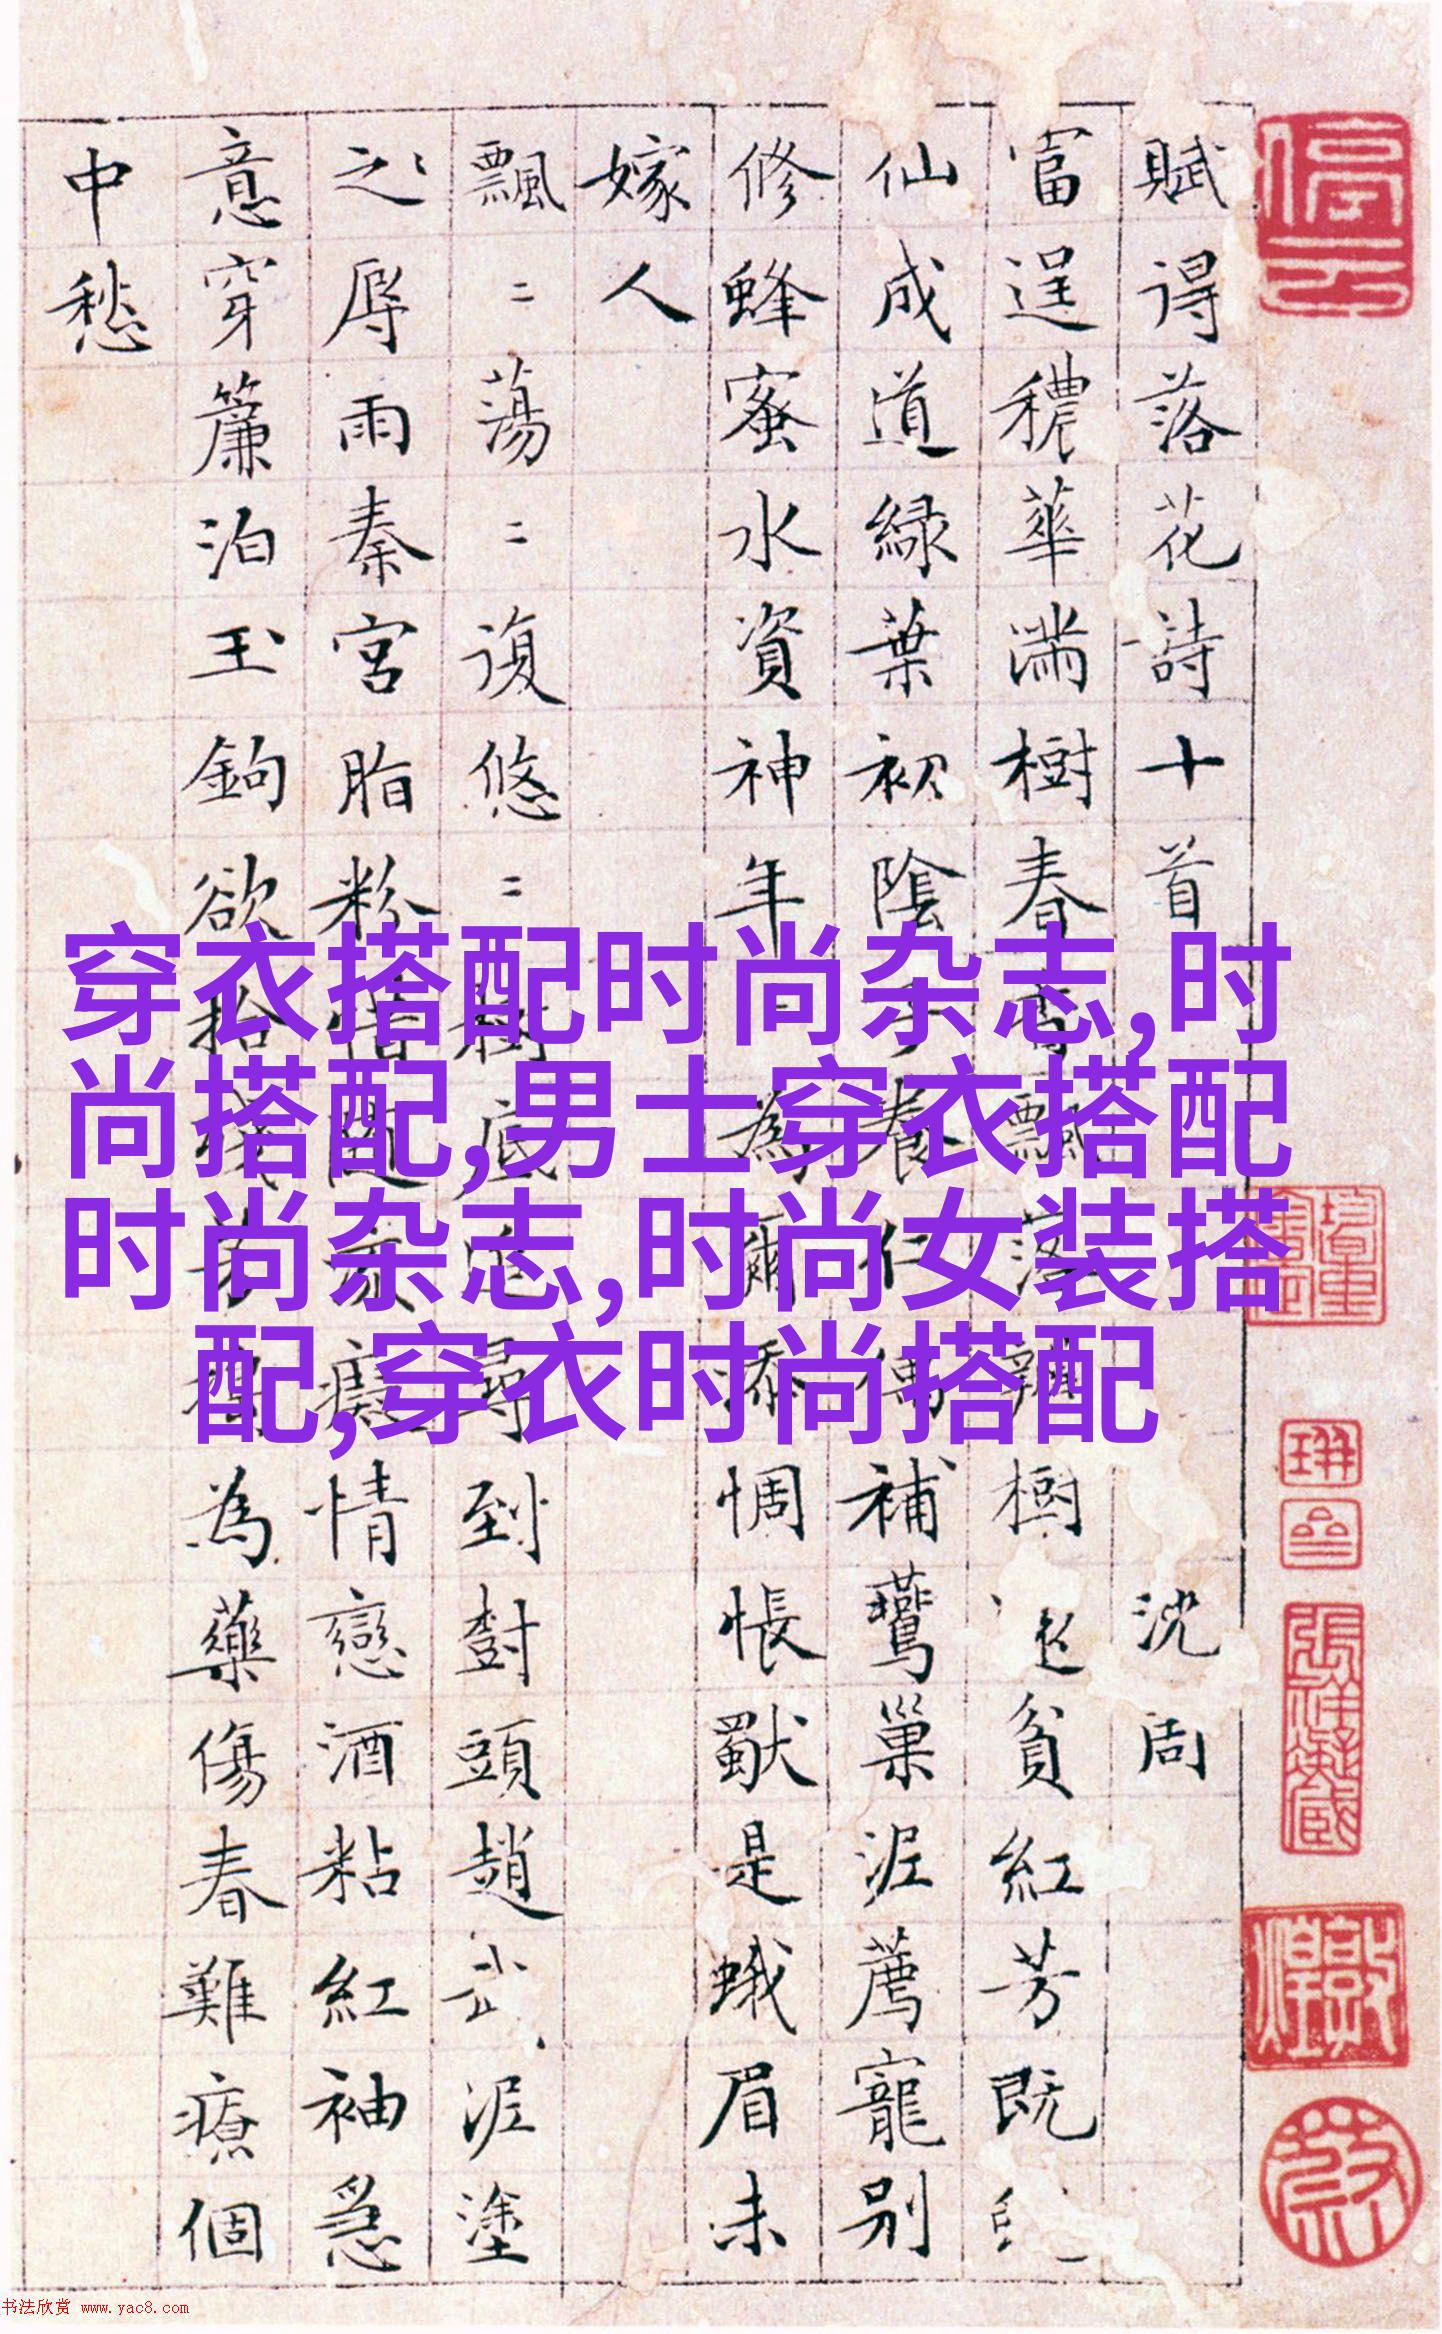 賦得落花詩十首 沈周
富逞穠華滿樹春香飄落瓣樹貧紅芳既
仙成道綠葉初陰子養仁偶補鶯巢泥薦寵別
修蜂蜜水資神年年為爾添惆悵是蛾眉未
嫁人
飄=蕩=復悠=樹底追尋到對頭趙武泥塗
之辱雨秦宮脂粉惜隨癡情戀酒粘紅袖急
意穿簾泊玉鉤欲拾殘芳搗為藥傷春難療個
中愁
穿衣搭配时尚杂志,时
尚搭配,男士穿衣搭配
时尚杂志,时尚女装搭
配,穿衣时尚搭配
书法欣赏 www.yac8.com